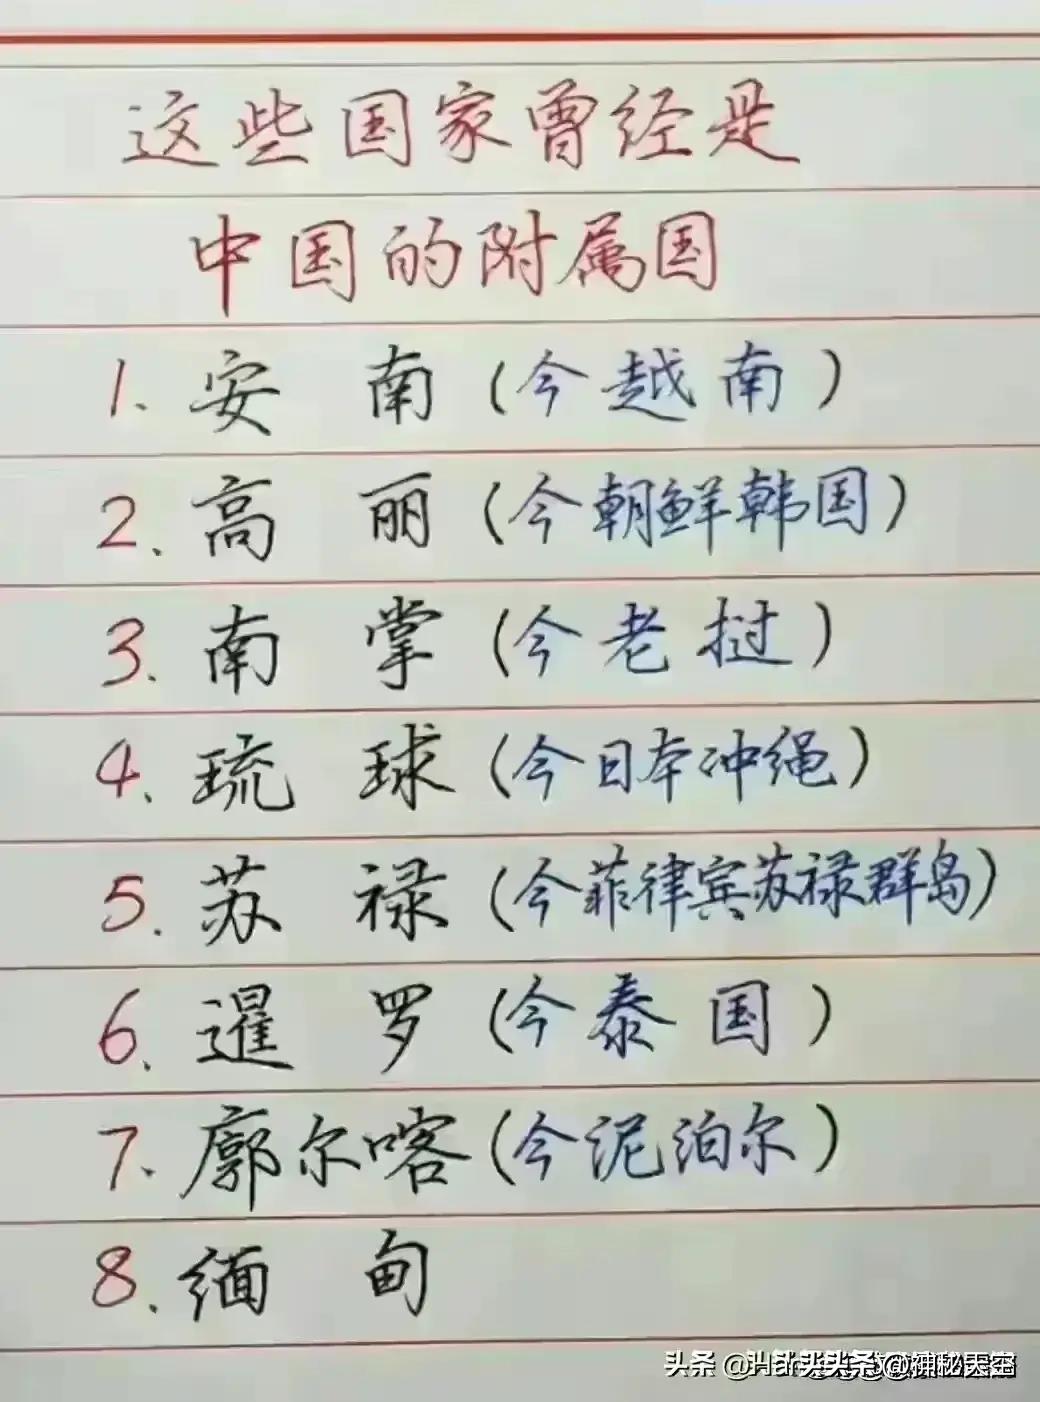 这些国家曾经是
中国的附属国
1、安南(今越南)
2、高丽(今朝鲜韩国)
3、南掌(今老挝)
4、琉球(今日本冲绳)
5、苏禄(今菲律宾苏禄群岛)
6、暹罗(今泰国)
7、廓尔喀(今泥泊尔)
8、缅甸
头条 @头条 @神秘天空